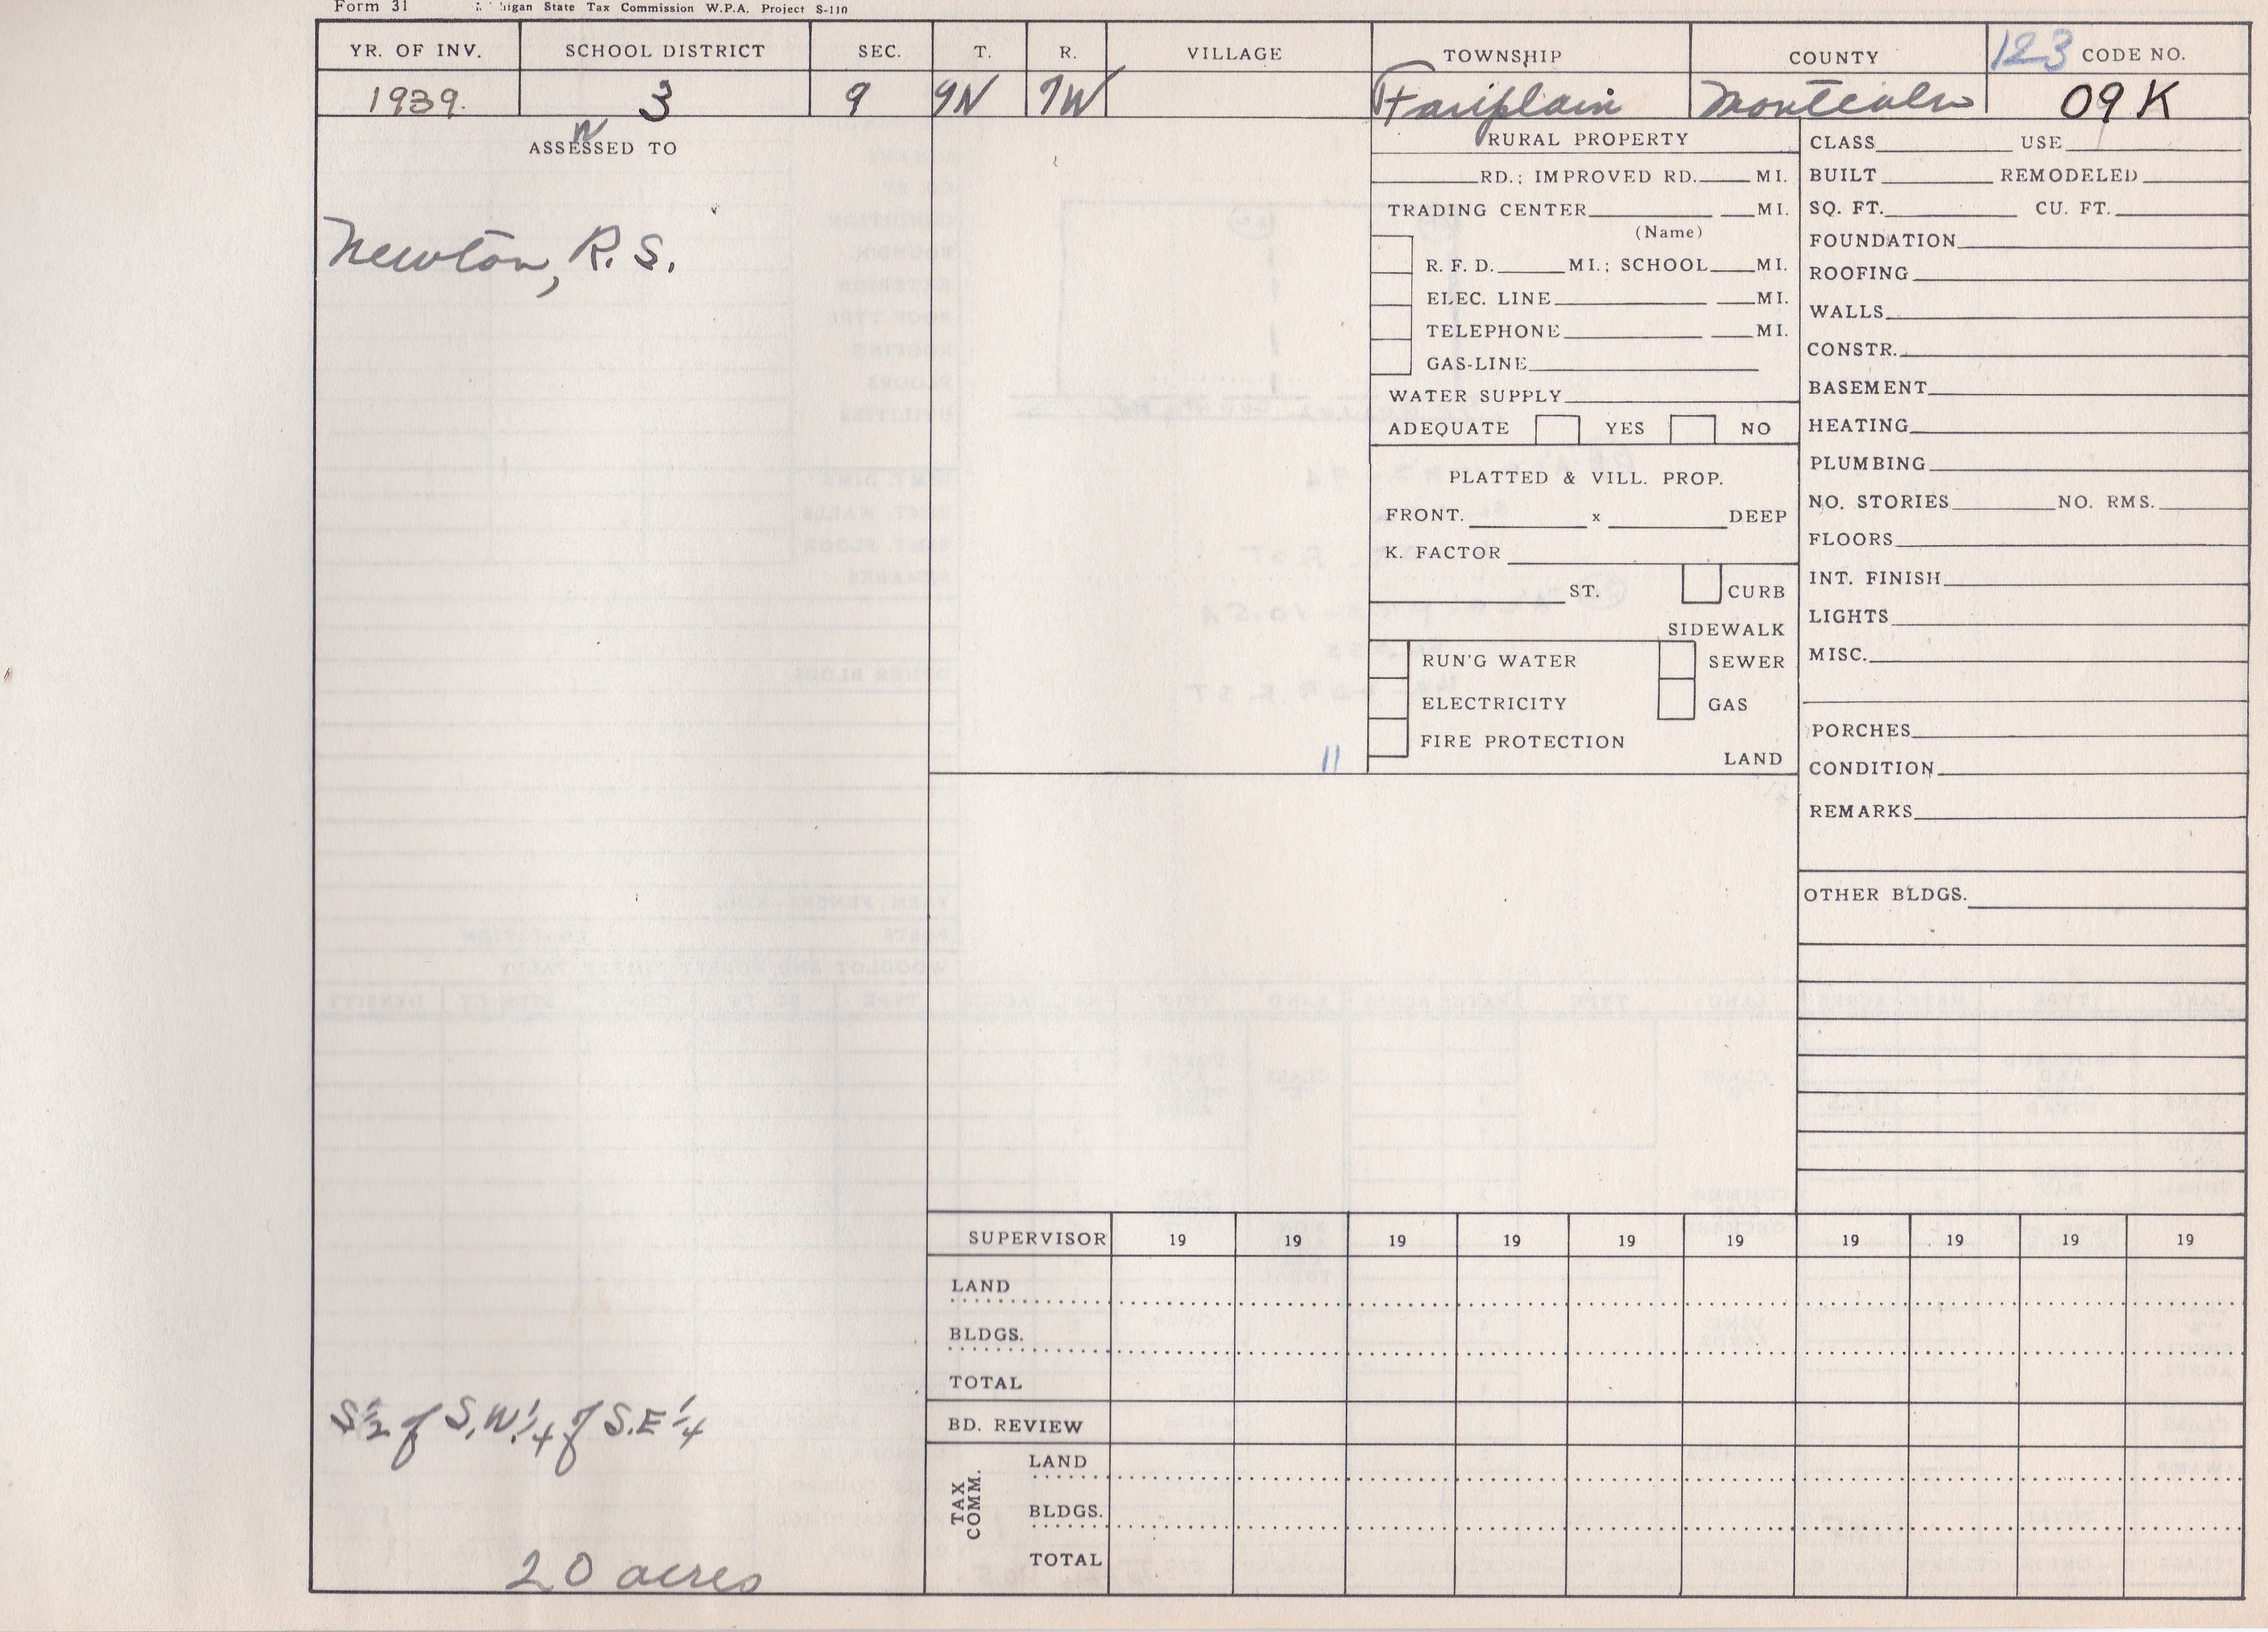 Form 31 Michigan State Tax Commission W.P.A. Project S-110
YR. OF INV. SCHOOL DISTRICT SEC. T. R. VILLAGE TOWNSHIP COUNTY 123 CODE NO.
1939. 3 9 9N 7W Fairplain Montcalm 09 K
N
ASSESSED TO
Newton, R. S.
S 1/2 of S.W. 1/4 of S.E 1/4
20 acres
11
RURAL PROPERTY
RD.; IMPROVED RD. MI.
TRADING CENTER MI.
(Name)
R. F. D. MI.; SCHOOL MI.
ELEC. LINE MI.
TELEPHONE MI.
GAS-LINE
WATER SUPPLY
ADEQUATE YES NO
PLATTED & VILL. PROP.
FRONT. x DEEP
K. FACTOR
ST. CURB
SIDEWALK
RUN'G WATER SEWER
ELECTRICITY GAS
FIRE PROTECTION
LAND
CLASS USE
BUILT REMODELED
SQ. FT. CU. FT.
FOUNDATION
ROOFING
WALLS
CONSTR.
BASEMENT
HEATING
PLUMBING
NO. STORIES NO. RMS.
FLOORS
INT. FINISH
LIGHTS
MISC.
PORCHES
CONDITION
REMARKS
OTHER BLDGS.
SUPERVISOR 19 19 19 19 19 19 19 19 19 19
LAND
BLDGS.
TOTAL
BD. REVIEW
TAX COMM.
LAND
BLDGS.
TOTAL